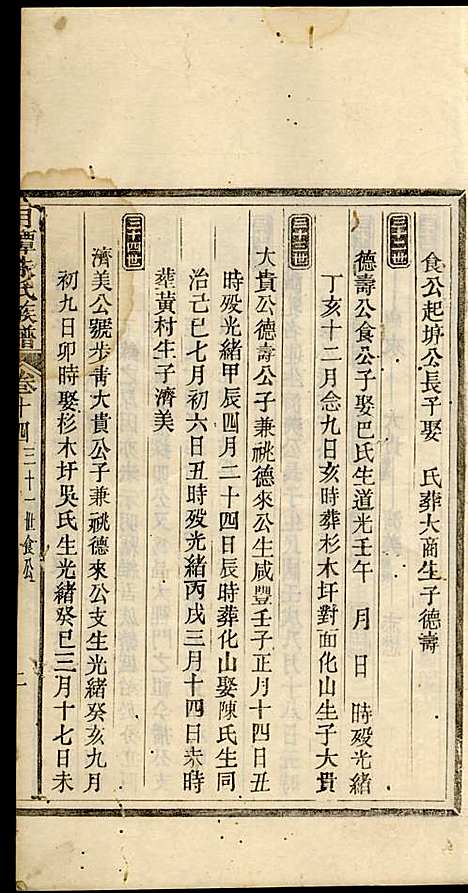 食公起堋公長子娶　氏葬大商生子德壽
三十二世
德壽公食公子娶巴氏生道光壬午　月　日　時殁光緒
丁亥十二月念九日亥時葬杉木圩對面化山生子大貴
三十三世
大貴公德壽公子兼祧德來公生咸豐壬子正月十四日丑
時殁光緒甲辰四月二十四日辰時葬化山娶陳氏生同
治己巳七月初六日丑時殁光緒丙戌三月十四日未時
葬黃村生子濟美
三十四世
濟美公號步青大貴公子兼祧德來公支生光緒癸亥九月
初九日卯時娶杉木圩吳氏生光緒癸巳三月十七日未
月潭朱氏族譜　卷十四　三十一世食公　二